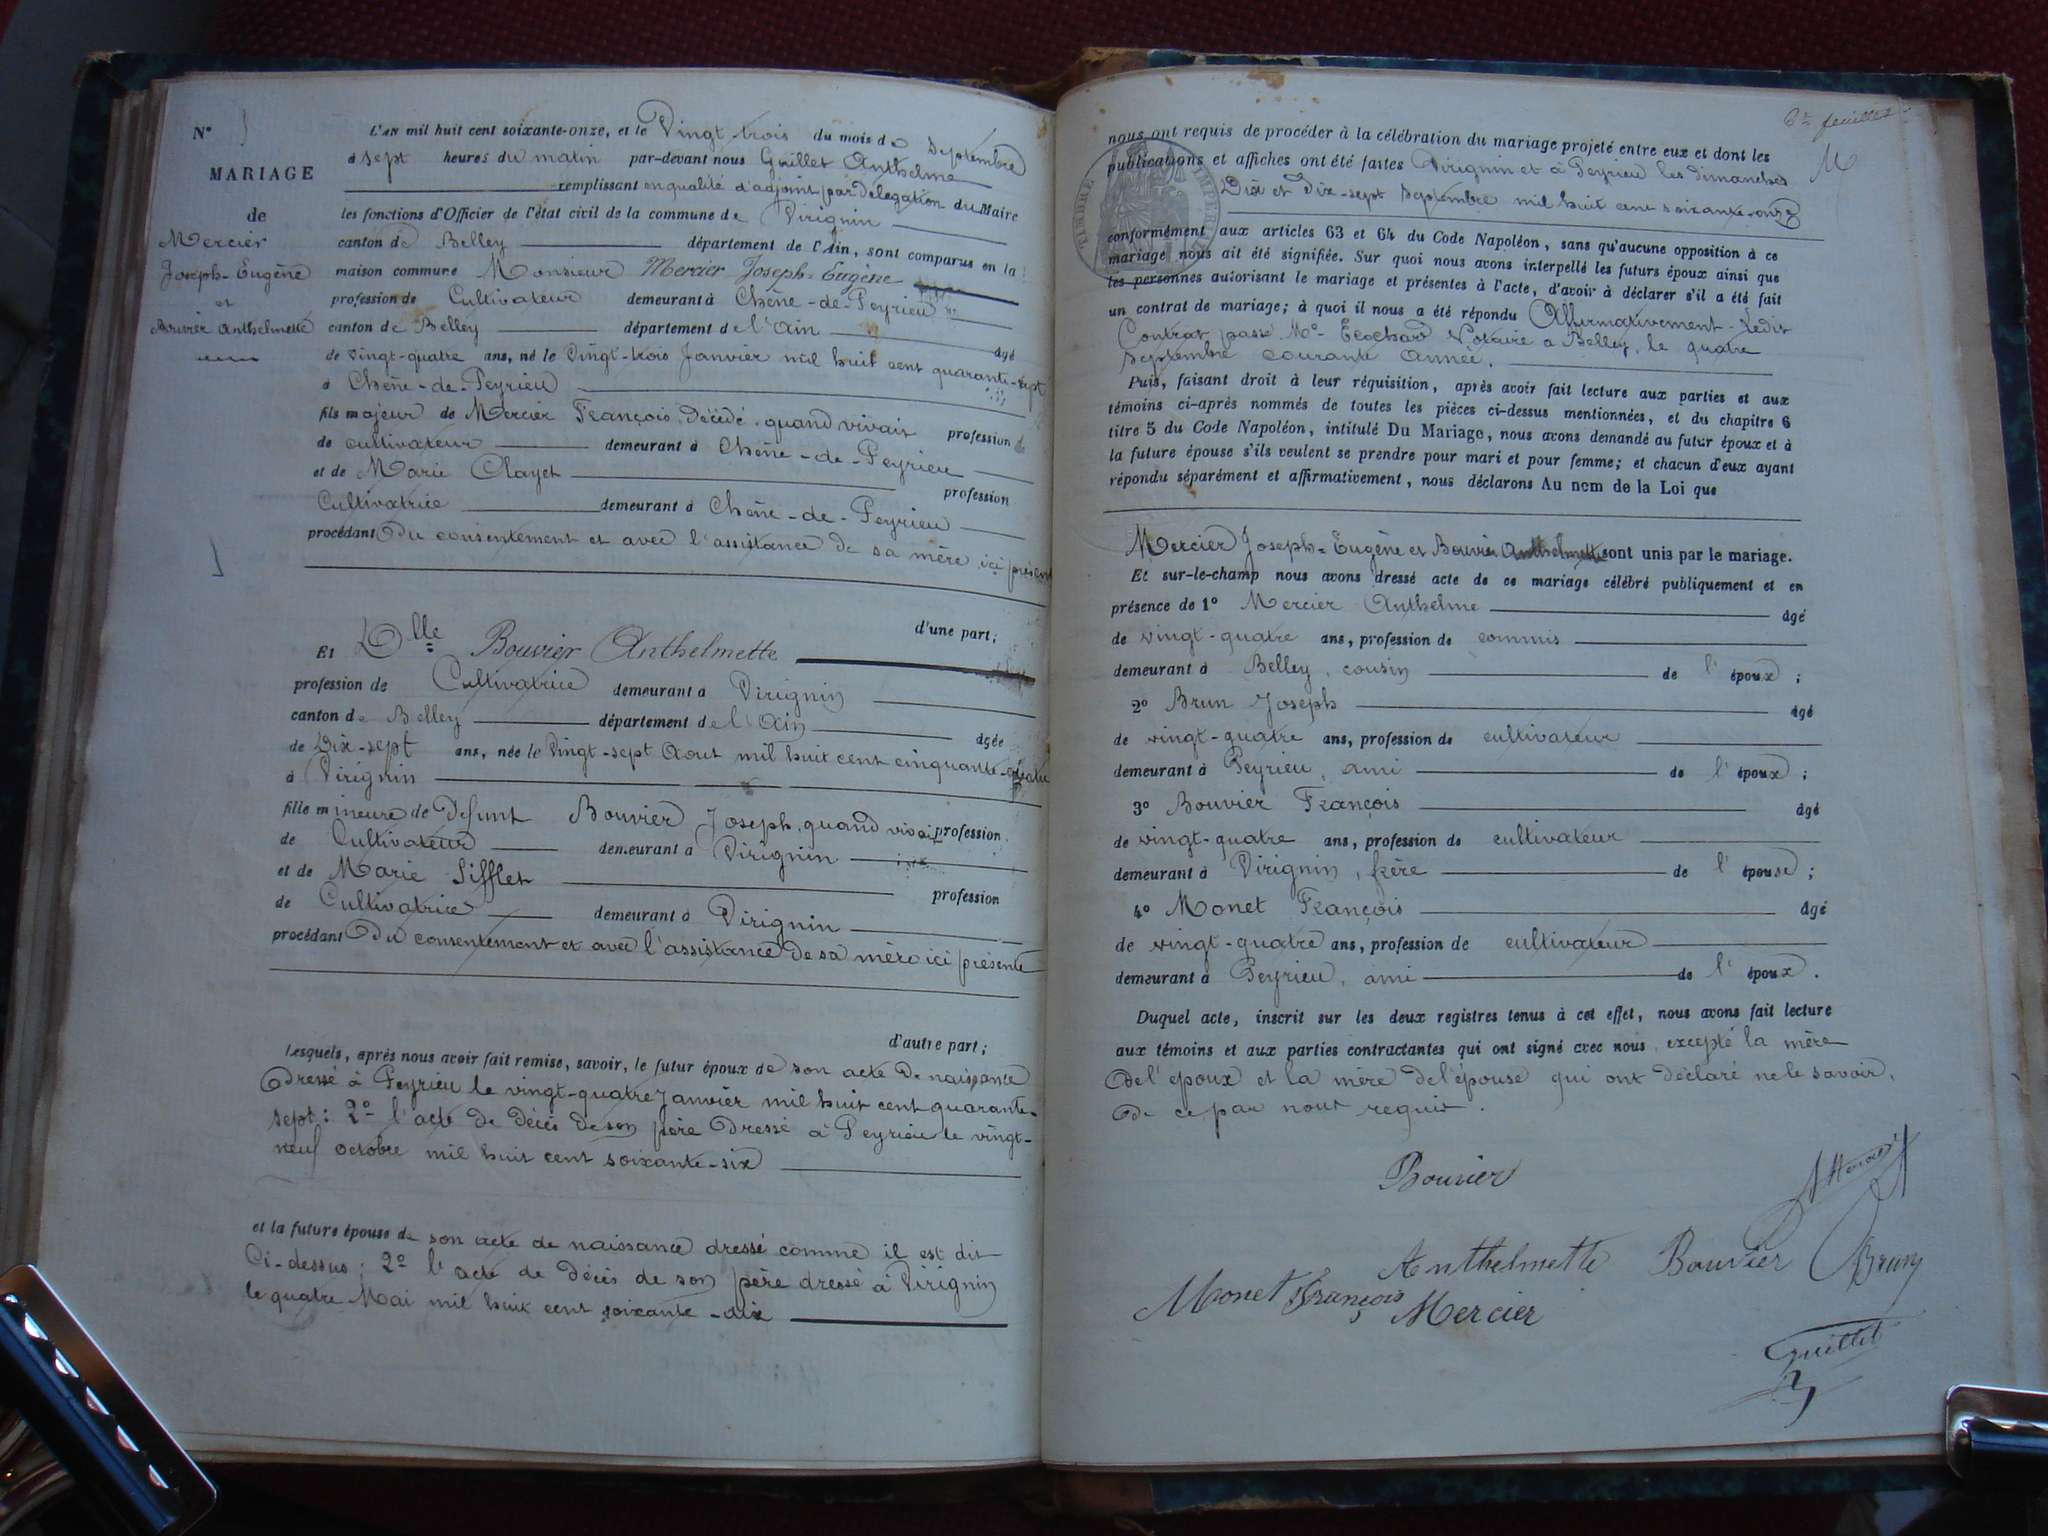 N°
MARIAGE
de
Mercier
Joseph-Eugène
et
Bouvier Anthelmette
L'AN mil huit cent soixante-onze, et le Vingt trois du mois de Septembre
à sept heures du matin par-devant nous Guillet Anthelme
remplissant en qualité d'adjoint par délégation du Maire
les fonctions d'Officier de l'état civil de la commune de Virignin
canton de Belley département de l'Ain, sont comparus en la
maison commune Monsieur Mercier Joseph-Eugène
profession de Cultivateur demeurant à Chêne-de-Peyrieu
canton de Belley département de l'Ain âgé
de vingt-quatre ans, né le Vingt-trois Janvier mil huit cent quarante-sept
à Chêne-de-Peyrieu
fils majeur de Mercier François, Décédé, quand vivait profession de
de cultivateur demeurant à Chêne-de-Peyrieu
et de Marie Clayet profession
Cultivatrice demeurant à Chêne-de-Peyrieu
procédant Du consentement et avec l'assistance de sa mère ici présente
d'une part;
Et Dlle Bouvier Anthelmette
profession de Cultivatrice demeurant à Virignin
canton de Belley département de l'Ain âgée
de Dix-sept ans, née le Vingt-sept Aout mil huit cent cinquante-quatre
à Virignin
fille mineure de Defunt Bouvier Joseph, quand vivait profession
de Cultivateur demeurant à Virignin
et de Marie Sifflet profession
de Cultivatrice demeurant à Virignin
procédant Du consentement et avec l'assistance de sa mère ici présente
d'autre part;
Lesquels, après nous avoir fait remise, savoir, le futur époux de son acte De naissance
Dressé à Peyrieu le vingt-quatre Janvier mil huit cent quarante-
sept: 2° l'acte de Décès de son père Dressé à Peyrieu le vingt-
neuf octobre mil huit cent soixante-six
et la future épouse de son acte de naissance dressé comme il est dit
Ci-dessus; 2° l'acte de Décès de son père dressé à Virignin
le quatre Mai mil huit cent soixante-dix
6e feuillet
nous ont requis de procéder à la célébration du mariage projeté entre eux et dont les
publications et affiches ont été faites Virignin et à Peyrieu les dimanches
Dix et Dix-sept Septembre mil huit cent soixante-onze
TIMBRE IMPÉR
conformément aux articles 63 et 64 du Code Napoléon, sans qu'aucune opposition à ce
mariage nous ait été signifiée. Sur quoi nous avons interpellé les futurs époux ainsi que
les personnes autorisant le mariage et présentes à l'acte, d'avoir à déclarer s'il a été fait
un contrat de mariage; à quoi il nous a été répondu Affirmativement. Ledit
Contrat passé Me Notaire à Belley, le quatre
Septembre courante année.
Puis, faisant droit à leur réquisition, après avoir fait lecture aux parties et aux
témoins ci-après nommés de toutes les pièces ci-dessus mentionnées, et du chapitre 6
titre 5 du Code Napoléon, intitulé Du Mariage, nous avons demandé au futur époux et à
la future épouse s'ils veulent se prendre pour mari et pour femme; et chacun d'eux ayant
répondu séparément et affirmativement, nous déclarons Au nom de la Loi que
Mercier Joseph-Eugène et Bouvier Anthelmette sont unis par le mariage.
Et sur-le-champ nous avons dressé acte de ce mariage célébré publiquement et en
présence de 1° Mercier Anthelme âgé
de vingt-quatre ans, profession de commis
demeurant à Belley, cousin de l'époux;
2° Brun Joseph âgé
de vingt-quatre ans, profession de cultivateur
demeurant à Peyrieu, ami de l'époux;
3° Bouvier François âgé
de vingt-quatre ans, profession de cultivateur
demeurant à Virignin, frère de l'épouse;
4° Monet François âgé
de vingt-quatre ans, profession de cultivateur
demeurant à Peyrieu, ami de l'époux.
Duquel acte, inscrit sur les deux registres tenus à cet effet, nous avons fait lecture
aux témoins et aux parties contractantes qui ont signé avec nous, excepté la mère
De l'époux et la mère de l'épouse qui ont déclaré ne le savoir,
De ce par nous requis.
Bouvier
Anthelmette Bouvier Brun
Monet François Mercier
Guillet